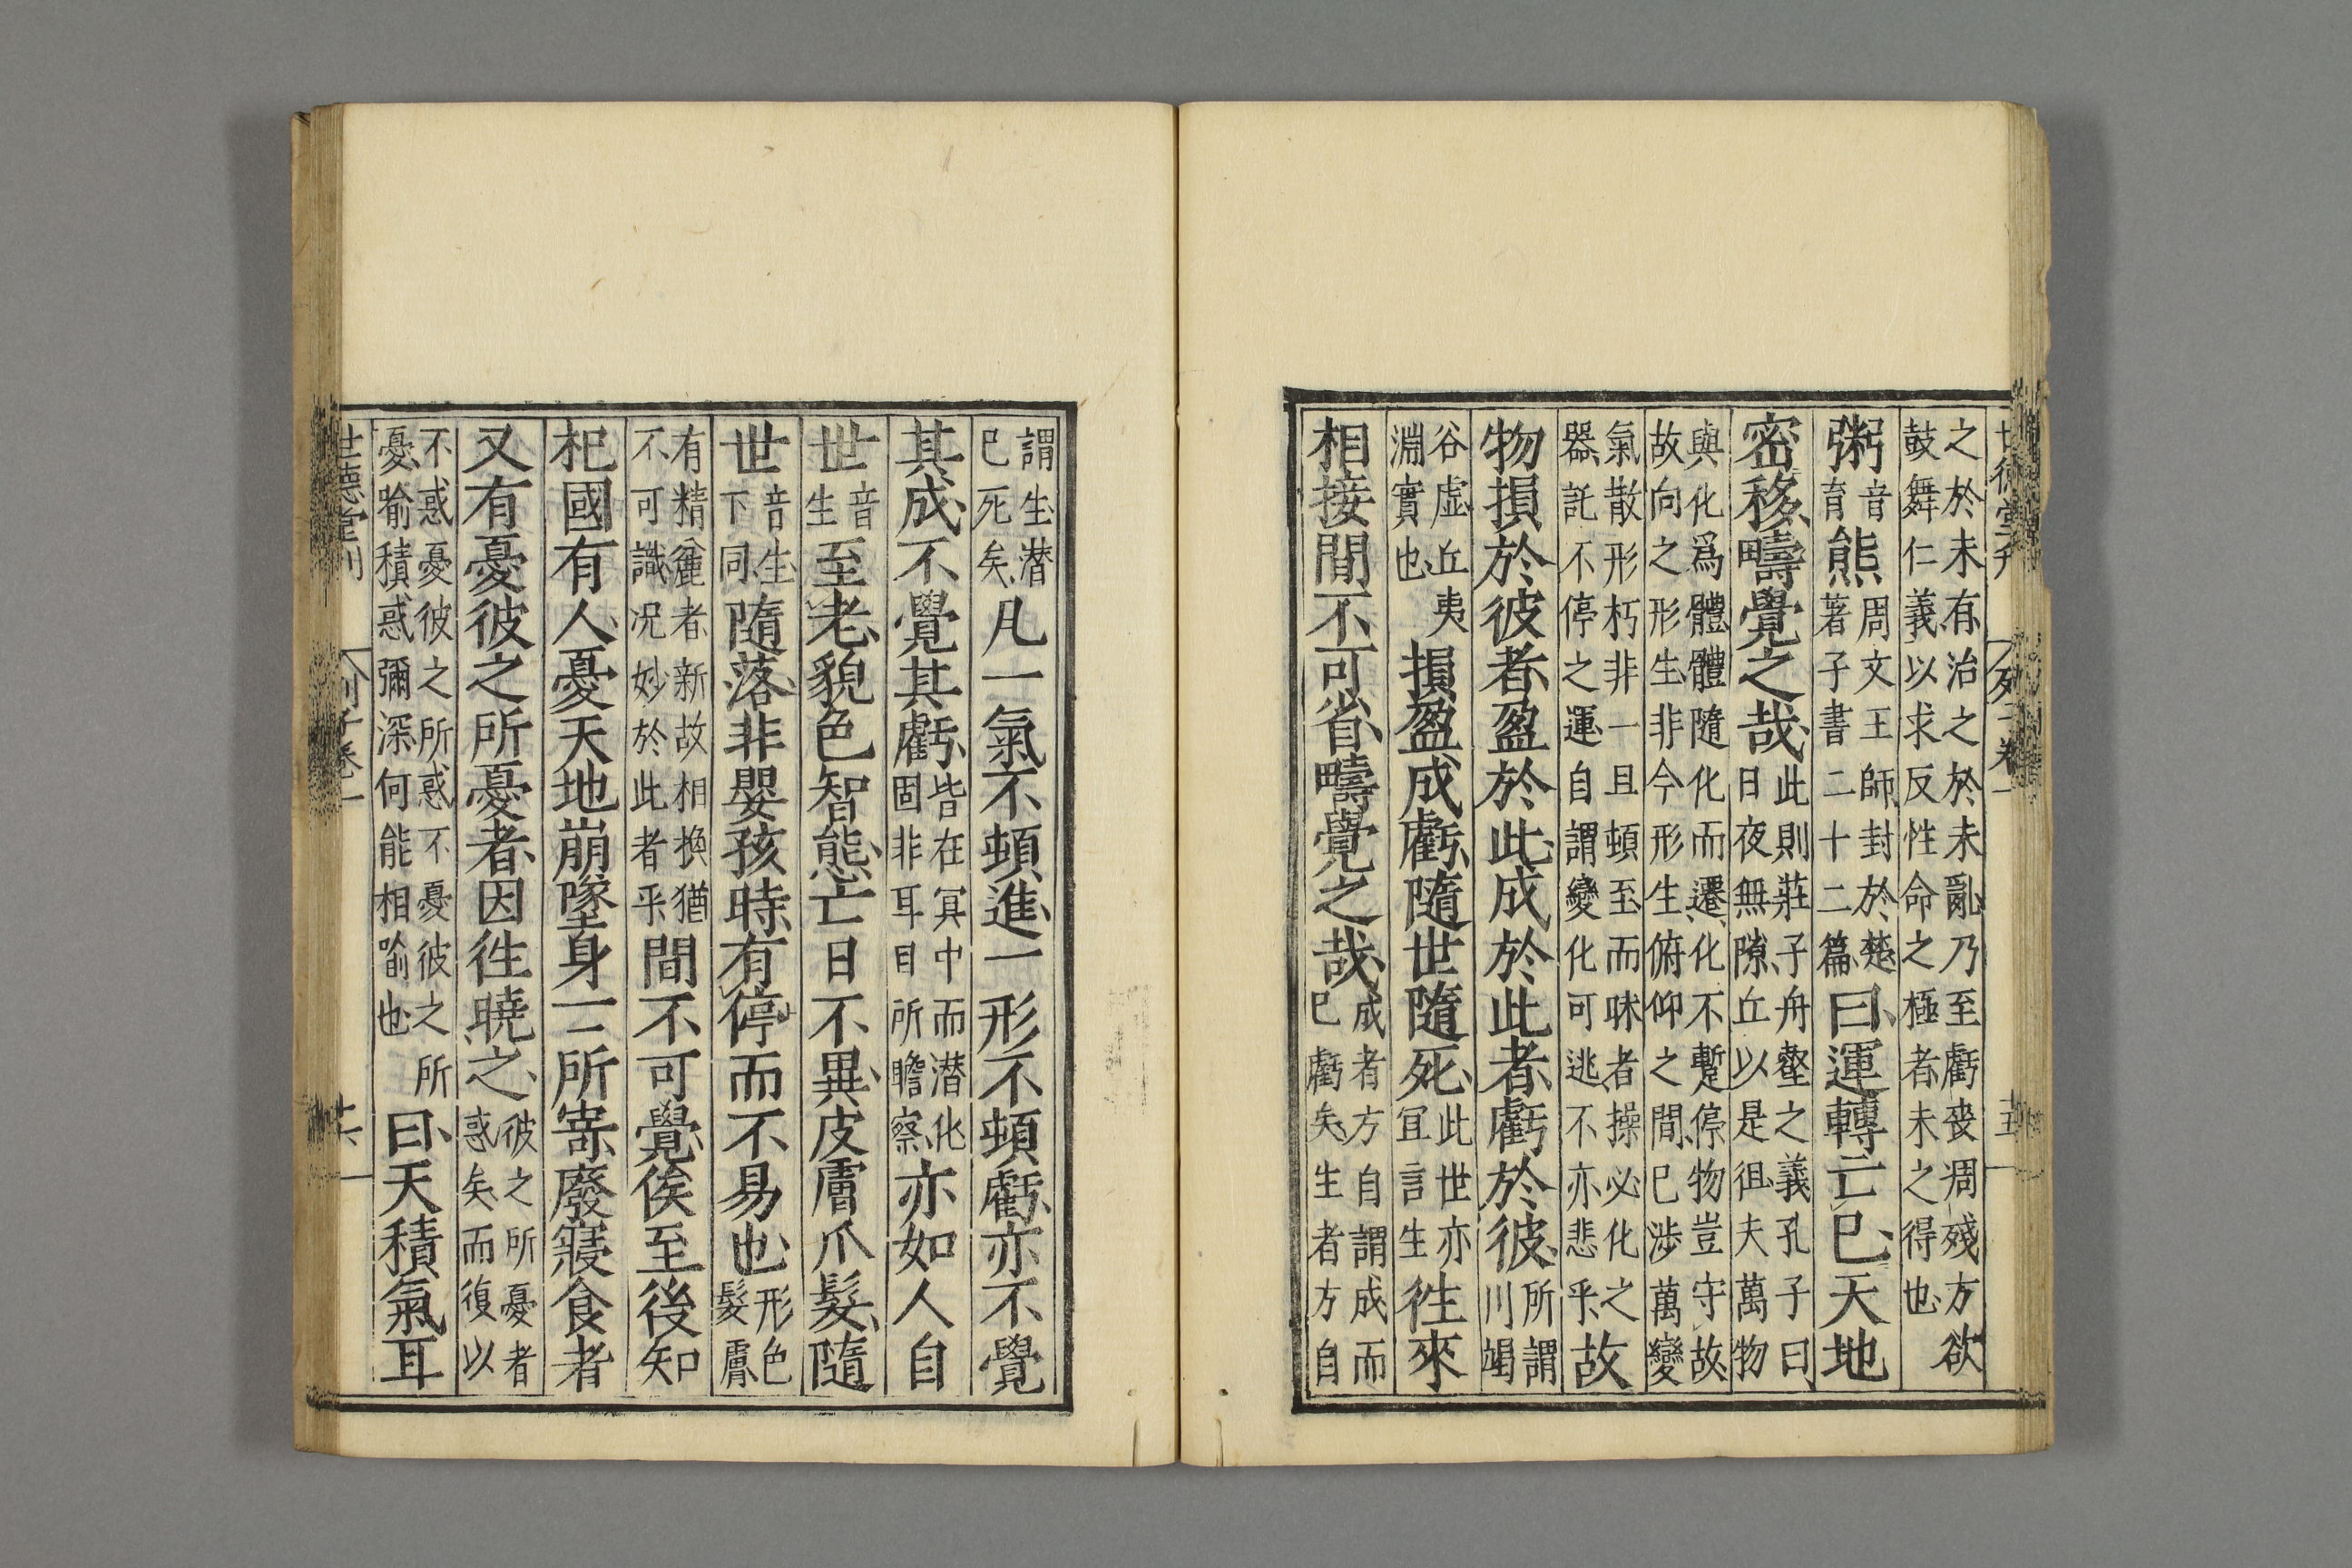 之於未有治之於未亂乃至虧喪凋殘方欲
鼓舞仁義以求反性命之極者未之得也
粥音育熊周文王師封於楚著子書二十二篇曰運轉亡已天地
密移疇覺之哉此則莊子舟壑之義孔子曰日夜無隙丘以是徂夫萬物
與化爲體體隨化而遷化不暫停物豈守故
故向之形生非今形生俯仰之間已涉萬變
氣散形朽非一旦頓至而昧者操必化之
器託不停之運自謂變化可逃不亦悲乎故
物損於彼者盈於此成於此者虧於彼所謂川竭
谷虛丘夷淵實也損盈成虧隨世隨死此世亦宜言生徃來
相接間不可省疇覺之哉成者方自謂成而已虧矣生者方自
謂生潛已死矣凡一氣不頓進一形不頓虧亦不覺
其成不覺其虧皆在冥中而潛化固非耳目所瞻察亦如人自
世音生至老貌色智態亡日不異皮膚爪髮隨
世音生下同隨落非嬰孩時有停而不易也形色髮膚
有精麤者新故相換猶不可識况妙於此者乎間不可覺俟至後知
杞國有人憂天地崩墜身亡所寄廢寢食者
又有憂彼之所憂者因徃曉之彼之所憂者惑矣而復以
不惑憂彼之所惑不憂彼之所
憂喻積惑彌深何能相喻也曰天積氣耳
世德堂刊 列子卷一 十六